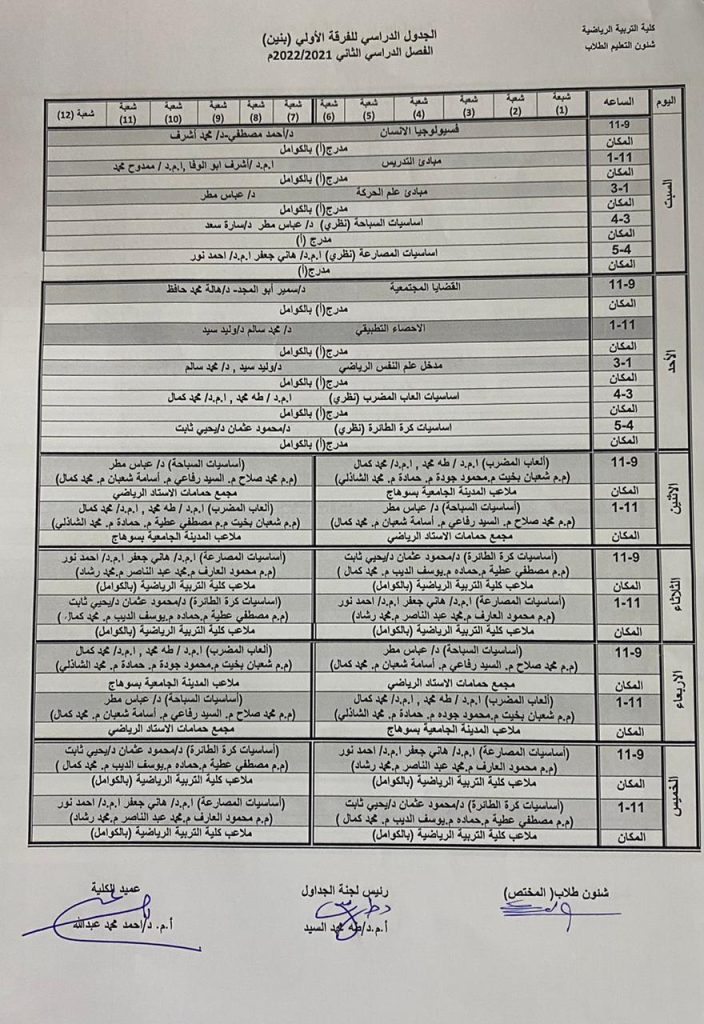 كلية التربية الرياضية
شئون التعليم الطلاب
الجدول الدراسي للفرقة الأولي (بنين)
الفصل الدراسي الثاني 2022/2021م
اليوم الساعه شعبة (1) شعبة (2) شعبة (3) شعبة (4) شعبة (5) شعبة (6) شعبة (7) شعبة (8) شعبة (9) شعبة (10) شعبة (11) شعبة (12)
السبت
11-9 فسيولوجيا الانسان د/أحمد مصطفي-د/ محمد أشرف
المكان مدرج(أ) بالكوامل
1-11 مبادئ التدريس ا.م.د /أشرف ابو الوفا ,ا.م.د / ممدوح محمد
المكان مدرج(أ) بالكوامل
3-1 مبادئ علم الحركة د/ عباس مطر
المكان مدرج(أ) بالكوامل
4-3 اساسيات السباحة (نظري) د/ عباس مطر د/سارة سعد
المكان مدرج (أ)
5-4 اساسيات المصارعة (نظري) ا.م.د/ هاني جعفر ا.م.د/ احمد نور
المكان مدرج(أ)
الأحد
11-9 القضايا المجتمعية د/سمير أبو المجد- د/هالة محمد حافظ
المكان مدرج(أ) بالكوامل
1-11 الاحصاء التطبيقي د/ محمد سالم د/وليد سيد
المكان مدرج(أ) بالكوامل
3-1 مدخل علم النفس الرياضي د/وليد سيد , د/ محمد سالم
المكان مدرج(أ) بالكوامل
4-3 اساسيات العاب المضرب (نظري) ا.م.د / طه محمد , ا.م.د/ محمد كمال
المكان مدرج(أ) بالكوامل
5-4 اساسيات كرة الطائرة (نظري) د/محمود عثمان د/يحيي ثابت
المكان مدرج(أ) بالكوامل
الاثنين
11-9 (ألعاب المضرب) ا.م.د / طه محمد , ا.م.د/ محمد كمال (أساسيات السباحة) د/ عباس مطر
(م.م شعبان بخيت م.محمود جودة م. حمادة م. محمد الشاذلي) (م.م محمد صلاح م. السيد رفاعي م. أسامة شعبان م. محمد كمال)
المكان ملاعب المدينة الجامعية بسوهاج مجمع حمامات الاستاد الرياضي
1-11 (أساسيات السباحة) د/ عباس مطر (ألعاب المضرب) ا.م.د / طه محمد , ا.م.د/ محمد كمال
(م.م محمد صلاح م. السيد رفاعي م. أسامة شعبان م. محمد كمال) (م.م شعبان بخيت م.م مصطفي عطية م. حمادة م. محمد الشاذلي)
المكان مجمع حمامات الاستاد الرياضي ملاعب المدينة الجامعية بسوهاج
الثلاثاء
11-9 (أساسيات كرة الطائرة) د/محمود عثمان د/يحيي ثابت (أساسيات المصارعة) ا.م.د/ هاني جعفر ا.م.د/ احمد نور
(م.م مصطفي عطية م.حماده م.يوسف الديب م. محمد كمال ) (م.م محمود العارف م.محمد عبد الناصر م.محمد رشاد)
المكان ملاعب كلية التربية الرياضية (بالكوامل) ملاعب كلية التربية الرياضية (بالكوامل)
1-11 (أساسيات المصارعة) ا.م.د/ هاني جعفر ا.م.د/ احمد نور (أساسيات كرة الطائرة) د/محمود عثمان د/يحيي ثابت
(م.م محمود العارف م.محمد عبد الناصر م.محمد رشاد) (م.م مصطفي عطية م.حماده م.يوسف الديب م. محمد كمال )
المكان ملاعب كلية التربية الرياضية (بالكوامل) ملاعب كلية التربية الرياضية (بالكوامل)
الاربعاء
11-9 (أساسيات السباحة) د/ عباس مطر (ألعاب المضرب) ا.م.د / طه محمد , ا.م.د/ محمد كمال
(م.م محمد صلاح م. السيد رفاعي م. أسامة شعبان م. محمد كمال) (م.م شعبان بخيت م.محمود جودة م. حمادة م. محمد الشاذلي)
المكان مجمع حمامات الاستاد الرياضي ملاعب المدينة الجامعية بسوهاج
1-11 (ألعاب المضرب) ا.م.د / طه محمد , ا.م.د/ محمد كمال (أساسيات السباحة) د/ عباس مطر
(م.م شعبان بخيت م.محمود جوده م. حمادة م. محمد الشاذلي) (م.م محمد صلاح م. السيد رفاعي م. أسامة شعبان م. محمد كمال)
المكان ملاعب المدينة الجامعية بسوهاج مجمع حمامات الاستاد الرياضي
الخميس
11-9 (أساسيات المصارعة) ا.م.د/ هاني جعفر ا.م.د/ احمد نور (أساسيات كرة الطائرة) د/محمود عثمان د/يحيي ثابت
(م.م محمود العارف م.محمد عبد الناصر م.محمد رشاد) (م.م مصطفي عطية م.حماده م.يوسف الديب م. محمد كمال )
المكان ملاعب كلية التربية الرياضية (بالكوامل) ملاعب كلية التربية الرياضية (بالكوامل)
1-11 (أساسيات كرة الطائرة) د/محمود عثمان د/يحيي ثابت (أساسيات المصارعة) ا.م.د/ هاني جعفر ا.م.د/ احمد نور
(م.م مصطفي عطية م.حماده م.يوسف الديب م. محمد كمال ) (م.م محمود العارف م.محمد عبد الناصر م.محمد رشاد)
المكان ملاعب كلية التربية الرياضية (بالكوامل) ملاعب كلية التربية الرياضية (بالكوامل)
شئون طلاب( المختص) رئيس لجنة الجداول عميد الكلية
أ.م.د/طه محمد السيد أ.م. د/احمد محمد عبدالله